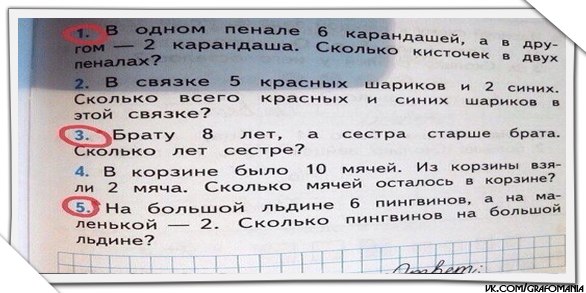 1. В одном пенале 6 карандашей, а в дру-
гом — 2 карандаша. Сколько кисточек в двух
пеналах?
2. В связке 5 красных шариков и 2 синих.
Сколько всего красных и синих шариков в
этой связке?
3. Брату 8 лет, а сестра старше брата.
Сколько лет сестре?
4. В корзине было 10 мячей. Из корзины взя-
ли 2 мяча. Сколько мячей осталось в корзине?
5. На большой льдине 6 пингвинов, а на ма-
ленькой — 2. Сколько пингвинов на большой
льдине?
Ответ:
VK.COM/GRAFOMANIA